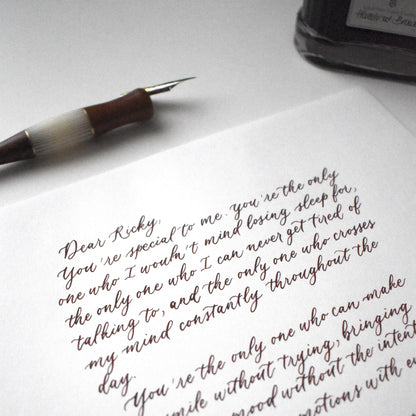 Dear Ricky,
You're special to me. You're the only
one who I wouln't mind losing sleep for,
the only one who I can never get tired of
talking to, and the only one who crosses
my mind constantly throughout the
day.
You're the only one who can make
smile without trying, bringing
mood without the intent
with